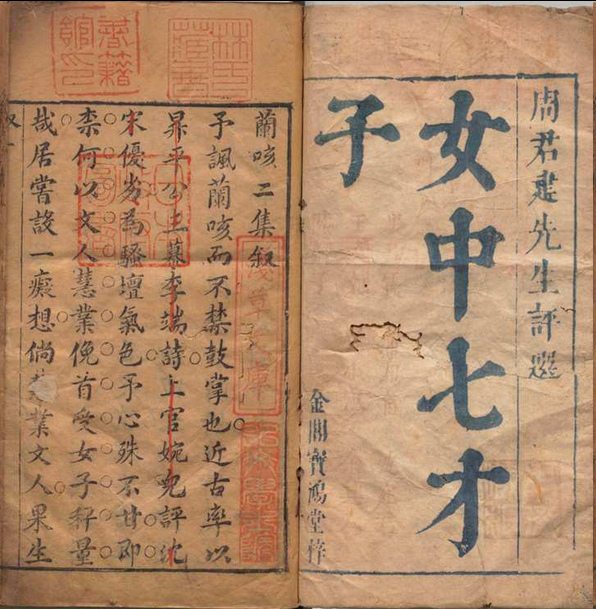 周君建先生評選
女中七才
子
金閶寶鴻堂梓
蘭咳二集叙
予諷蘭咳而不禁鼓掌也近古率以
昇平公主李端詩上官婉兒評沈
宋優劣為騷壇氣色予心殊不甘即
柰何以文人慧業俛首受女子秤量
哉居嘗設一癡想倘業文人果生
叙